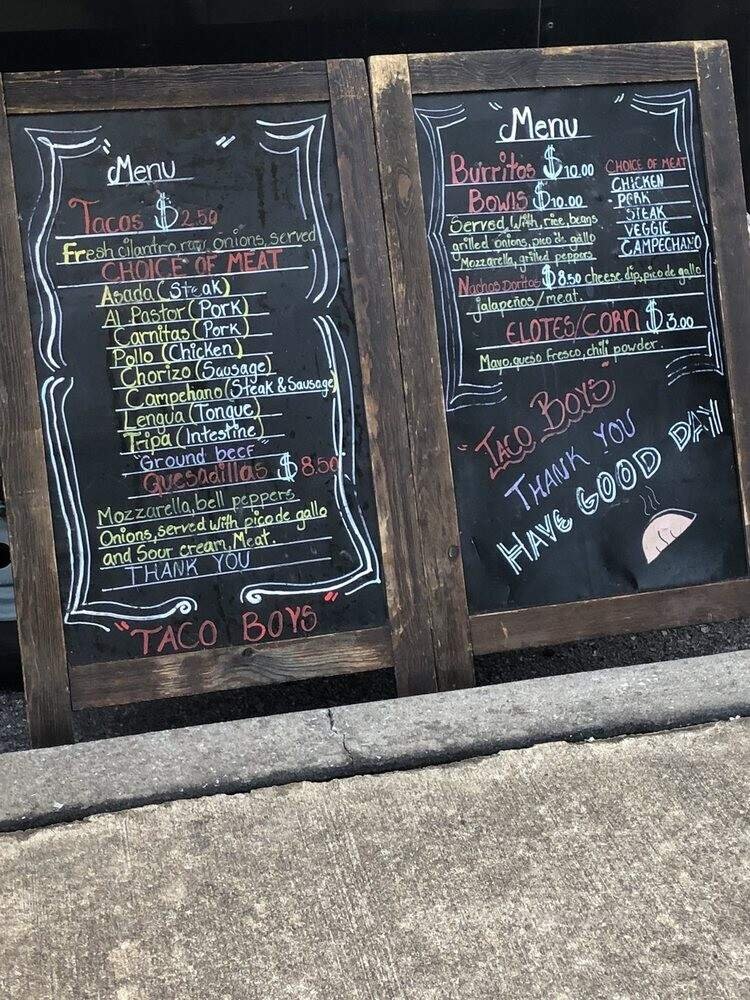 "Menu"
Tacos $2.50
Fresh cilantro raw onions, served
CHOICE OF MEAT
Asada (Steak)
Al Pastor (Pork)
Carnitas (Pork)
Pollo (Chicken)
Chorizo (Sausage)
Campehano (Steak & Sausage)
Lengua (Tongue)
Tripa (Intestine)
"Ground beef"
Quesadillas $8.50
Mozzarella, bell peppers
Onions, served with pico de gallo
and Sour cream, Meat.
THANK YOU
"TACO BOYS"
"Menu"
Burritos $10.00
Bowls $10.00
Served With, rice, beans
grilled onions, pico de gallo
Mozzarella, grilled peppers
CHOICE OF MEAT
CHICKEN
PORK
STEAK
VEGGIE
CAMPECHANO
Nachos Doritos $8.50 cheese dip, pico de gallo
jalapeños/meat.
ELOTES/CORN $3.00
Mayo, queso Fresco, chili powder.
"TACO BOYS"
THANK YOU
HAVE GOOD DAY